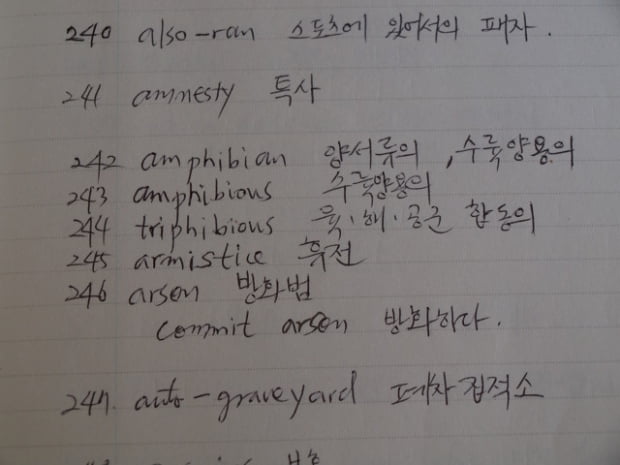 240 also-ran 스포츠에 있어서의 패자.
241 amnesty 특사
242 amphibian 양서류의, 수륙양용의
243 amphibious 수륙양용의
244 triphibious 육·해·공군 합동의
245 armistice 휴전
246 arson 방화범
commit arson 방화하다.
247. auto-graveyard 폐차집적소